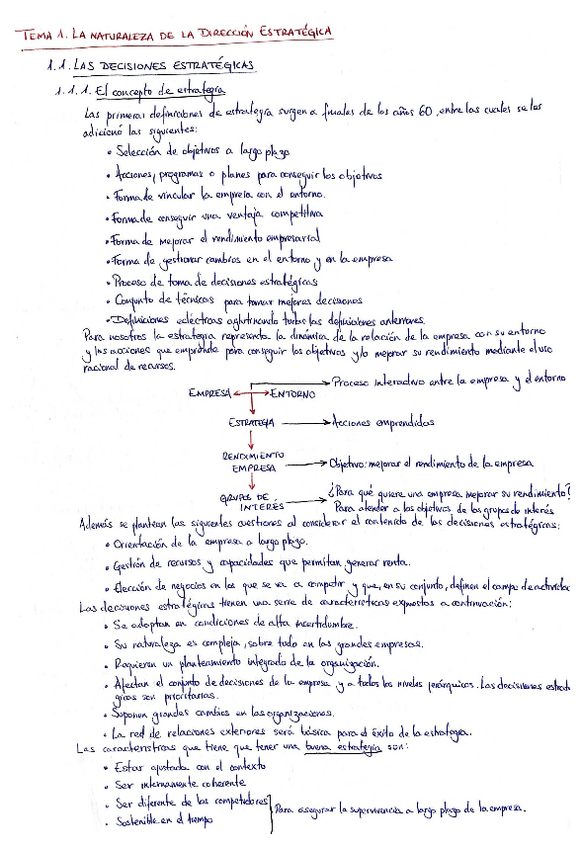 TEMA 1. LA NATURALEZA DE LA DIRECCIÓN ESTRATÉGICA
1.1. LAS DECISIONES ESTRATÉGICAS
1.1.1. El concepto de estrategia
Las primeras definiciones de estrategia surgen a finales de los años 60, entre las cuales se les
adicionó las siguientes:
• Selección de objetivos a largo plazo
• Acciones, programas o planes para conseguir los objetivos
• Forma de vincular la empresa con el entorno.
• Forma de conseguir una ventaja competitiva
• Forma de mejorar el rendimiento empresarial
• Forma de gestionar cambios en el entorno y en la empresa
• Proceso de toma de decisiones estratégicas
• Conjunto de técnicas para tomar mejores decisiones
• Definiciones eclécticas aglutinando todas las definiciones anteriores.
Para nosotros la estrategia representa la dinámica de la relación de la empresa con su entorno
y las acciones que emprende para conseguir los objetivos y/o mejorar su rendimiento mediante el uso
racional de recursos.
Proceso interactivo entre la empresa y el entorno
EMPRESA ENTORNO
ESTRATEGIA Acciones emprendidas
RENDIMIENTO
EMPRESA Objetivo: mejorar el rendimiento de la empresa
GRUPOS DE
INTERÉS
¿Para qué quiere una empresa mejorar su rendimiento?
Para atender a los objetivos de los grupos de interés
Además se plantean las siguientes cuestiones al considerar el contenido de las decisiones estratégicas:
• Orientación de la empresa a largo plazo.
• Gestión de recursos y capacidades que permitan generar renta.
• Elección de negocios en los que se va a competir y que, en su conjunto, definen el campo de actividad
Las decisiones estratégicas tienen una serie de características expuestas a continuación:
• Se adoptan en condiciones de alta incertidumbre.
• Su naturaleza es compleja, sobre todo en las grandes empresas.
• Requieren un planteamiento integrado de la organización.
• Afectan el conjunto de decisiones de la empresa y a todos los niveles jerárquicos. Las decisiones estraté
gicas son prioritarias.
• Suponen grandes cambios en las organizaciones.
• La red de relaciones exteriores será básica para el éxito de la estrategia.
Las características que tiene que tener una buena estrategia son:
• Estar ajustada con el contexto
• Ser internamente coherente
• Ser diferente de los competidores
• Sostenible en el tiempo
Para asegurar la supervivencia a largo plazo de la empresa.